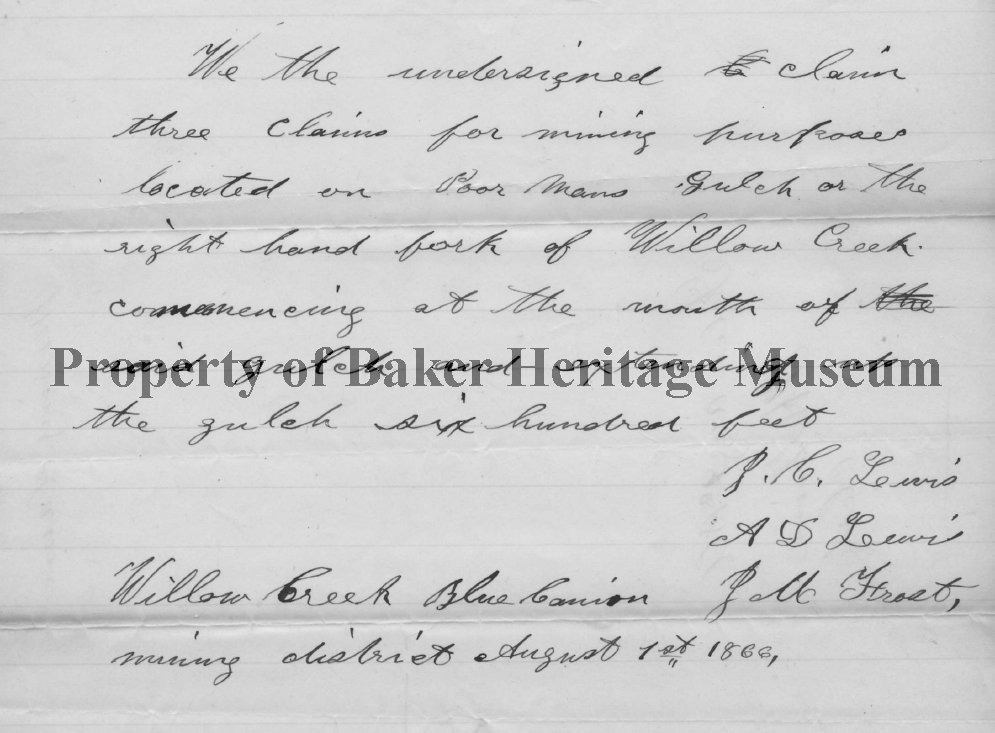 We the undersigned claim
three claims for mining purposes
located on Poor Mans Gulch or the
right hand fork of Willow Creek.
commencing at the mouth of the
said gulch and extending up
Property of Baker Heritage Museum
the gulch six hundred feet
J. C. Lewis
A D Lewis
Willow Creek Blue Canion J M Frost,
mining district August 1st 1866,